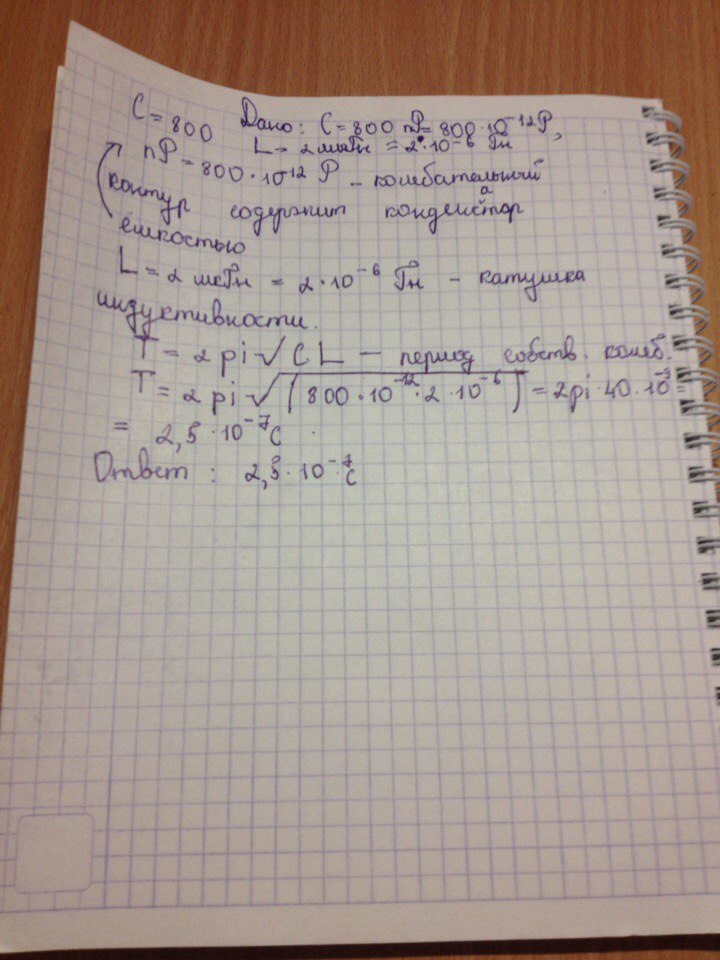 C = 800 Дано: C = 800 пР = 800 · 10⁻¹² Р,
L = 2 мкГн = 2 · 10⁻⁶ Гн
пР = 800 · 10⁻¹² Р – колебательный
контур содержит конденсатор
ёмкостью
L = 2 мкГн = 2 · 10⁻⁶ Гн – катушка
индуктивности.
T = 2 pi √ C L – период собств. колеб.
T = 2 pi √(800 · 10⁻¹² · 2 · 10⁻⁶) = 2pi · 40 · 10⁻⁹ =
= 2,5 · 10⁻⁷ с
Ответ : 2,5 · 10⁻⁷ с